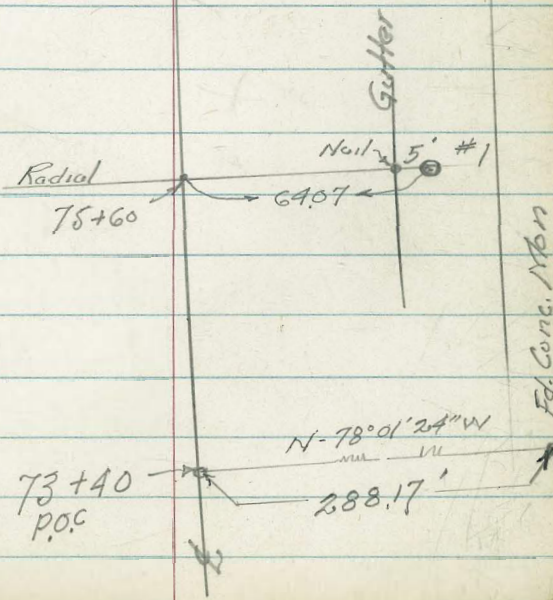 Gutter
Nail 5' #1
Radial
64.07
75+60
Fd. Conc. Mon
N-78°01'24"W
73+40
P.O.C
288.17'
℄